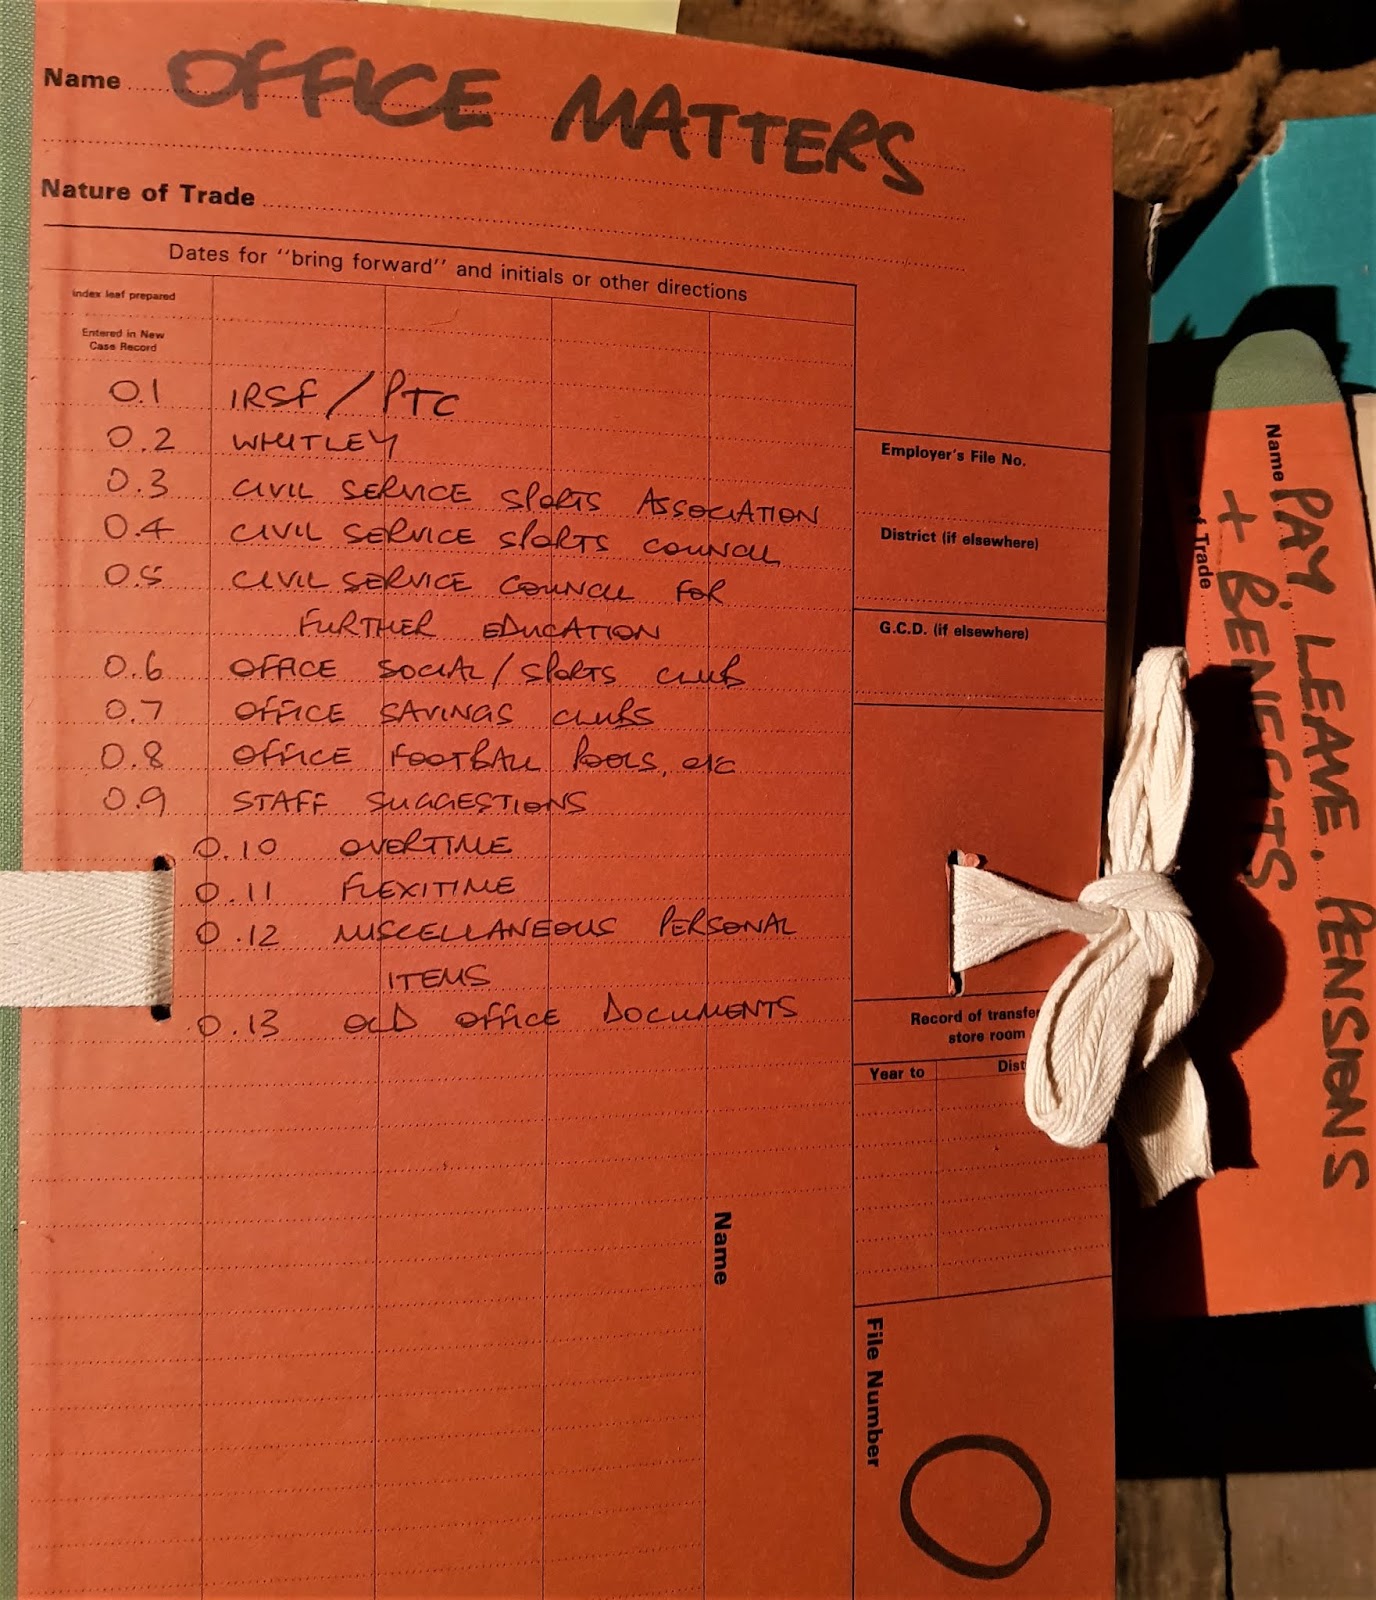 Name OFFICE MATTERS
Nature of Trade
Dates for "bring forward" and initials or other directions
Index leaf prepared
Entered in New
Case Record
0.1 IRSF / PTC
0.2 WHITLEY
0.3 CIVIL SERVICE SPORTS ASSOCIATION
0.4 CIVIL SERVICE SPORTS COUNCIL
0.5 CIVIL SERVICE COUNCIL FOR
FURTHER EDUCATION
0.6 OFFICE SOCIAL / SPORTS CLUB
0.7 OFFICE SAVINGS CLUBS
0.8 OFFICE FOOTBALL POOLS, etc
0.9 STAFF SUGGESTIONS
0.10 OVERTIME
0.11 FLEXITIME
0.12 MISCELLANEOUS PERSONAL
ITEMS
0.13 OLD OFFICE DOCUMENTS
Employer's File No.
District (if elsewhere)
G.C.D. (if elsewhere)
Record of transfe
store room
Year to Dist
Name
File Number
O
Name PAY, LEAVE, PENSIONS
+ BENEFITS
of Trade